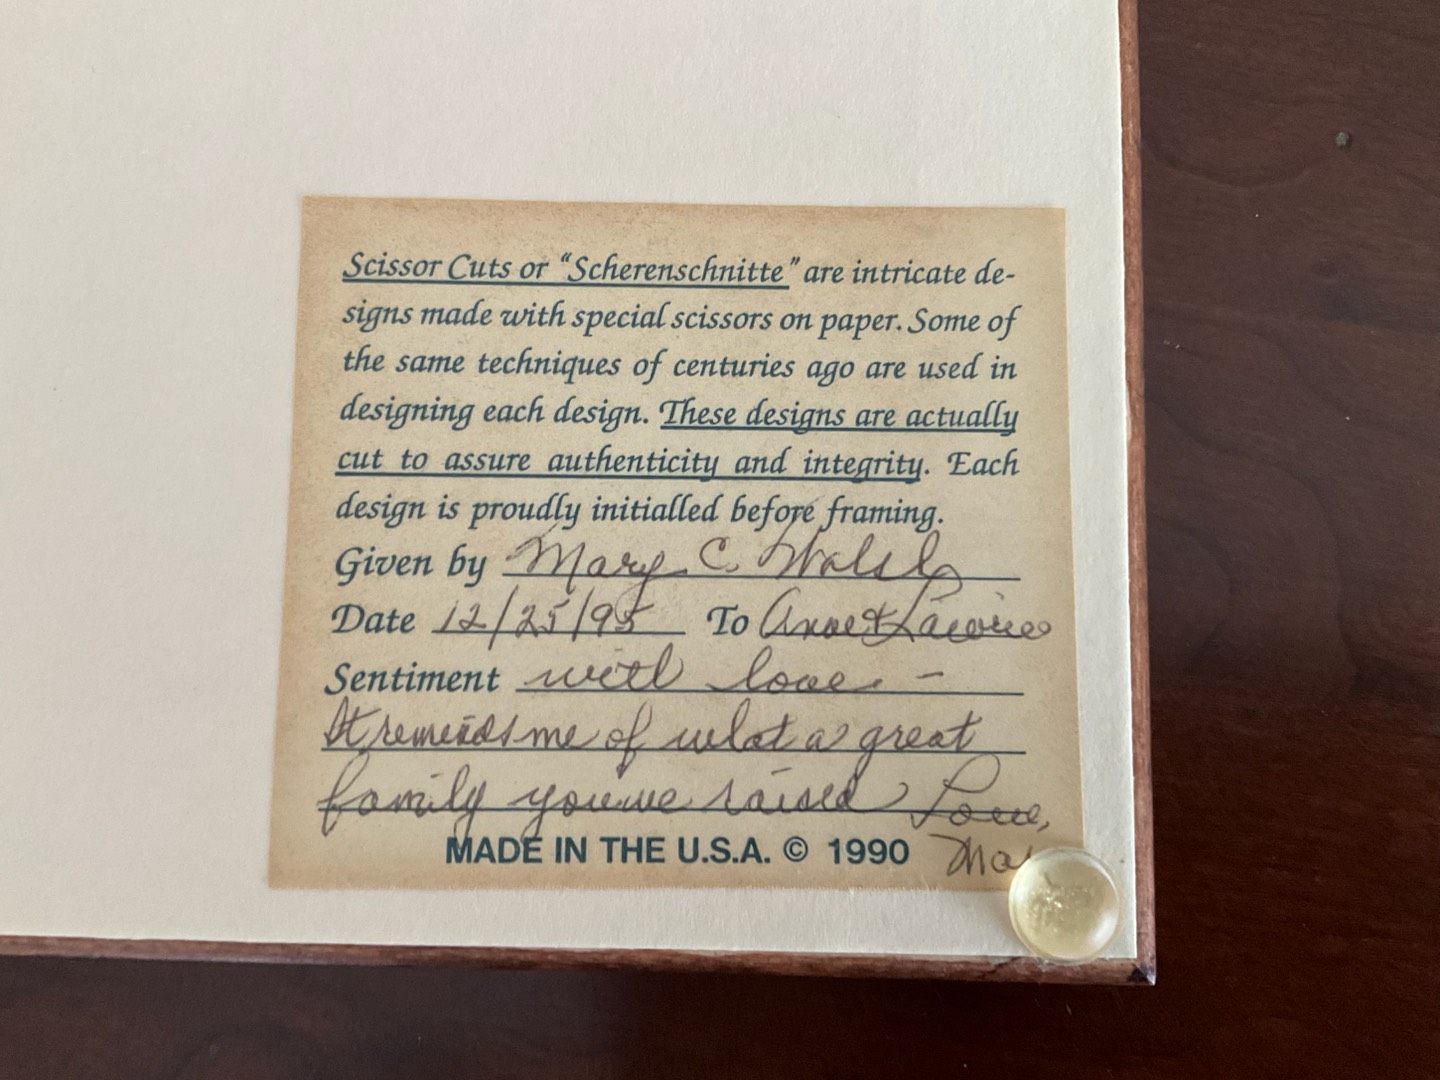 Scissor Cuts or “Scherenschnitte” are intricate de-
signs made with special scissors on paper. Some of
the same techniques of centuries ago are used in
designing each design. These designs are actually
cut to assure authenticity and integrity. Each
design is proudly initialled before framing.
Given by Mary C. Walsh
Date 12/25/95 To Anne &
Sentiment with love -
It reminds me of what a great
family you've raised Love,
MADE IN THE U.S.A. © 1990